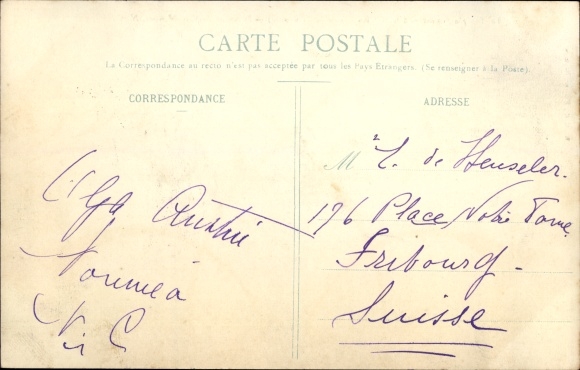 CARTE POSTALE
La Correspondance au recto n'est pas acceptée par tous les Pays Etrangers. (Se renseigner à la Poste).
CORRESPONDANCE
Austin
Nouméa
N. C
ADRESSE
M de Heuseler.
176 Place Notre Dame
Fribourg-
Suisse